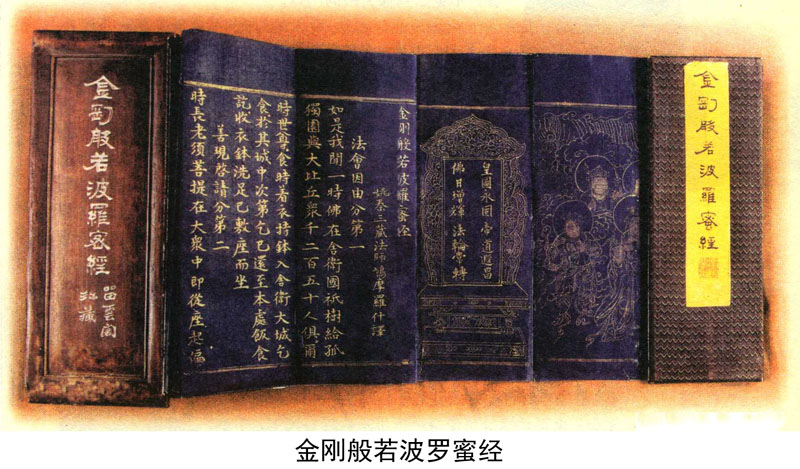 金剛般若波羅蜜經
皇圖永固 帝道遐昌
佛日增輝 法輪常轉
金剛般若波羅蜜经
姚秦三藏法師鳩摩羅什譯
法會因由分第一
如是我聞一時佛在舍衛國祇樹給孤
獨園與大比丘衆千二百五十人俱爾
時世尊食時着衣持鉢入舍衛大城乞
食於其城中次第乞已還至本處飯食
訖收衣鉢洗足已敷座而坐
善現啓請分第二
時長老須菩提在大衆中即從座起偏
金剛般若波羅蜜經
珍藏
金刚般若波罗蜜经